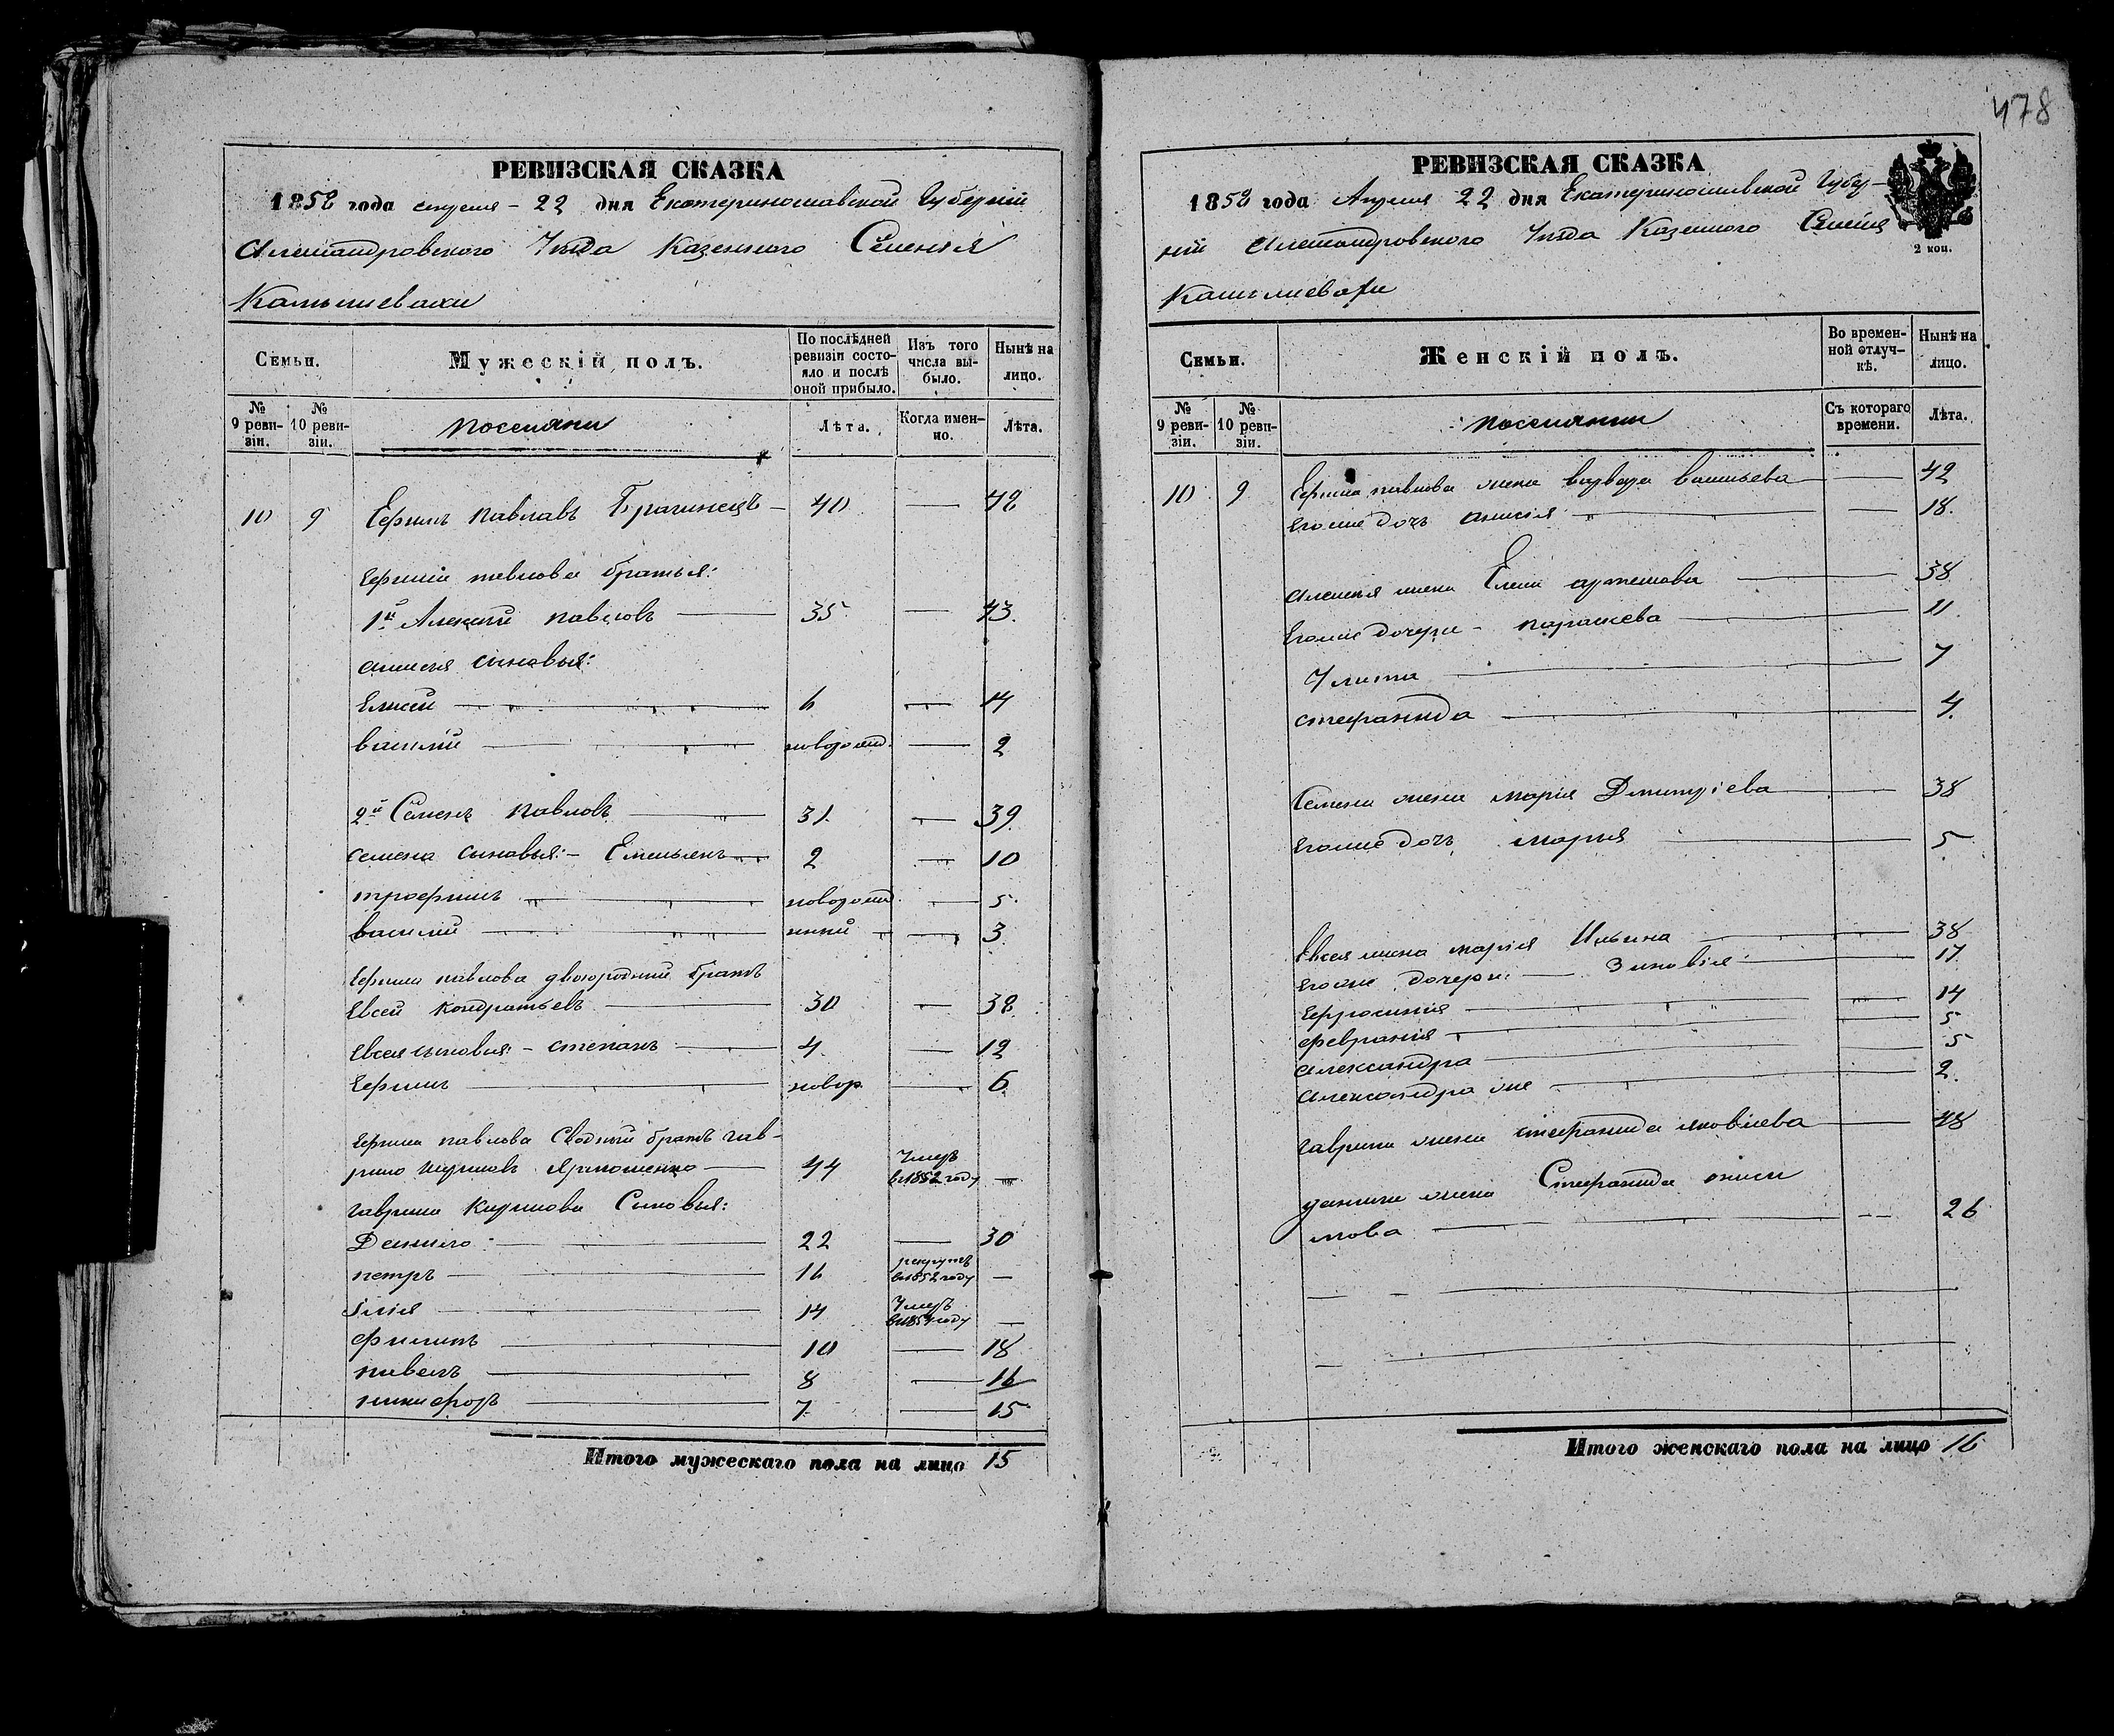 478
РЕВИЗСКАЯ СКАЗКА
1858 года апреля - 22 дня Екатеринославской Губерніи
Александровского Уезда Казенного Селенія
Камышевахи
Семьи.
Мужескій полъ.
По послѣдней ревизіи состояло и послѣ оной прибыло.
Изъ того числа выбыло.
Нынѣ на лицо.
№ 9 ревизіи.
№ 10 ревизіи.
поселяни
Лѣта.
Когда именно.
Лѣта.
10 9 Ефимъ павлавъ Брагинецъ 40 — 48
Ефима павлова братья:
1й Алексѣй павловъ — 35 — 43.
алексея сыновья:
Елисей — 6 — 14
василій — новорожд. — 2
2й Семенъ павловъ — 31. — 39.
семена сыновья: - Емельянъ 2 — 10
трофимъ — новорожд. — 5.
василий — — 3.
Ефима павлова двоюродний братъ
Евсей кондратьевъ — 30 — 38.
Евсея сыновья: - степанъ — 4. — 12
Ефимъ — новор. — 6.
Ефима павлова Сводный братъ гав-
рило кириловъ Ярмошенко — 44 Умеръ в 1852 году —
гаврила Кирилова Сыновья:
Данило — 22 — 30
петръ — 16 рекрутъ в 1852 году —
Ілія — 14 Умеръ в 1854 году —
филипъ — 10 — 18
павелъ — 8 — 16
никифоръ — 7. — 15
Итого мужескаго пола на лицо 15
РЕВИЗСКАЯ СКАЗКА
1858 года Апреля 22 дня Екатеринославской Губер-
ніи Александровского Уезда Казенного Селенія
Камышевахи
2 коп.
Семьи.
Женскій полъ.
Во временной отлучкѣ.
Нынѣ на лицо.
№ 9 ревизіи.
№ 10 ревизіи.
поселянки
Съ котораго времени.
Лѣта.
10 9 Ефима павлова жена варвара васильева — 42
Егоже дочъ анисія — 18.
алексея жена Елена артемова — 38
Егоже дочери - параскева — 11
Улита — 7
стефанида — 4.
Семена жена марія Дмитріева — 38
Егоже дочъ марья — 5
Евсея жена марія Ильина — 38
Егоже дочери: — Зиновія — 17.
Ефросинія — 14
февронія — 5
александра — 5
александра же — 2.
гаврила жена стефанида яковлева — 48
данила жена Стефанида
мова — 26
Итого женскаго пола на лицо 16